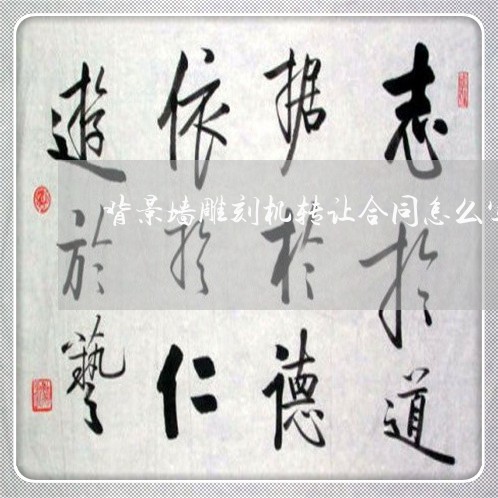 志於道
据於德
依於仁
遊於藝
背景墙雕刻机转让合同怎么